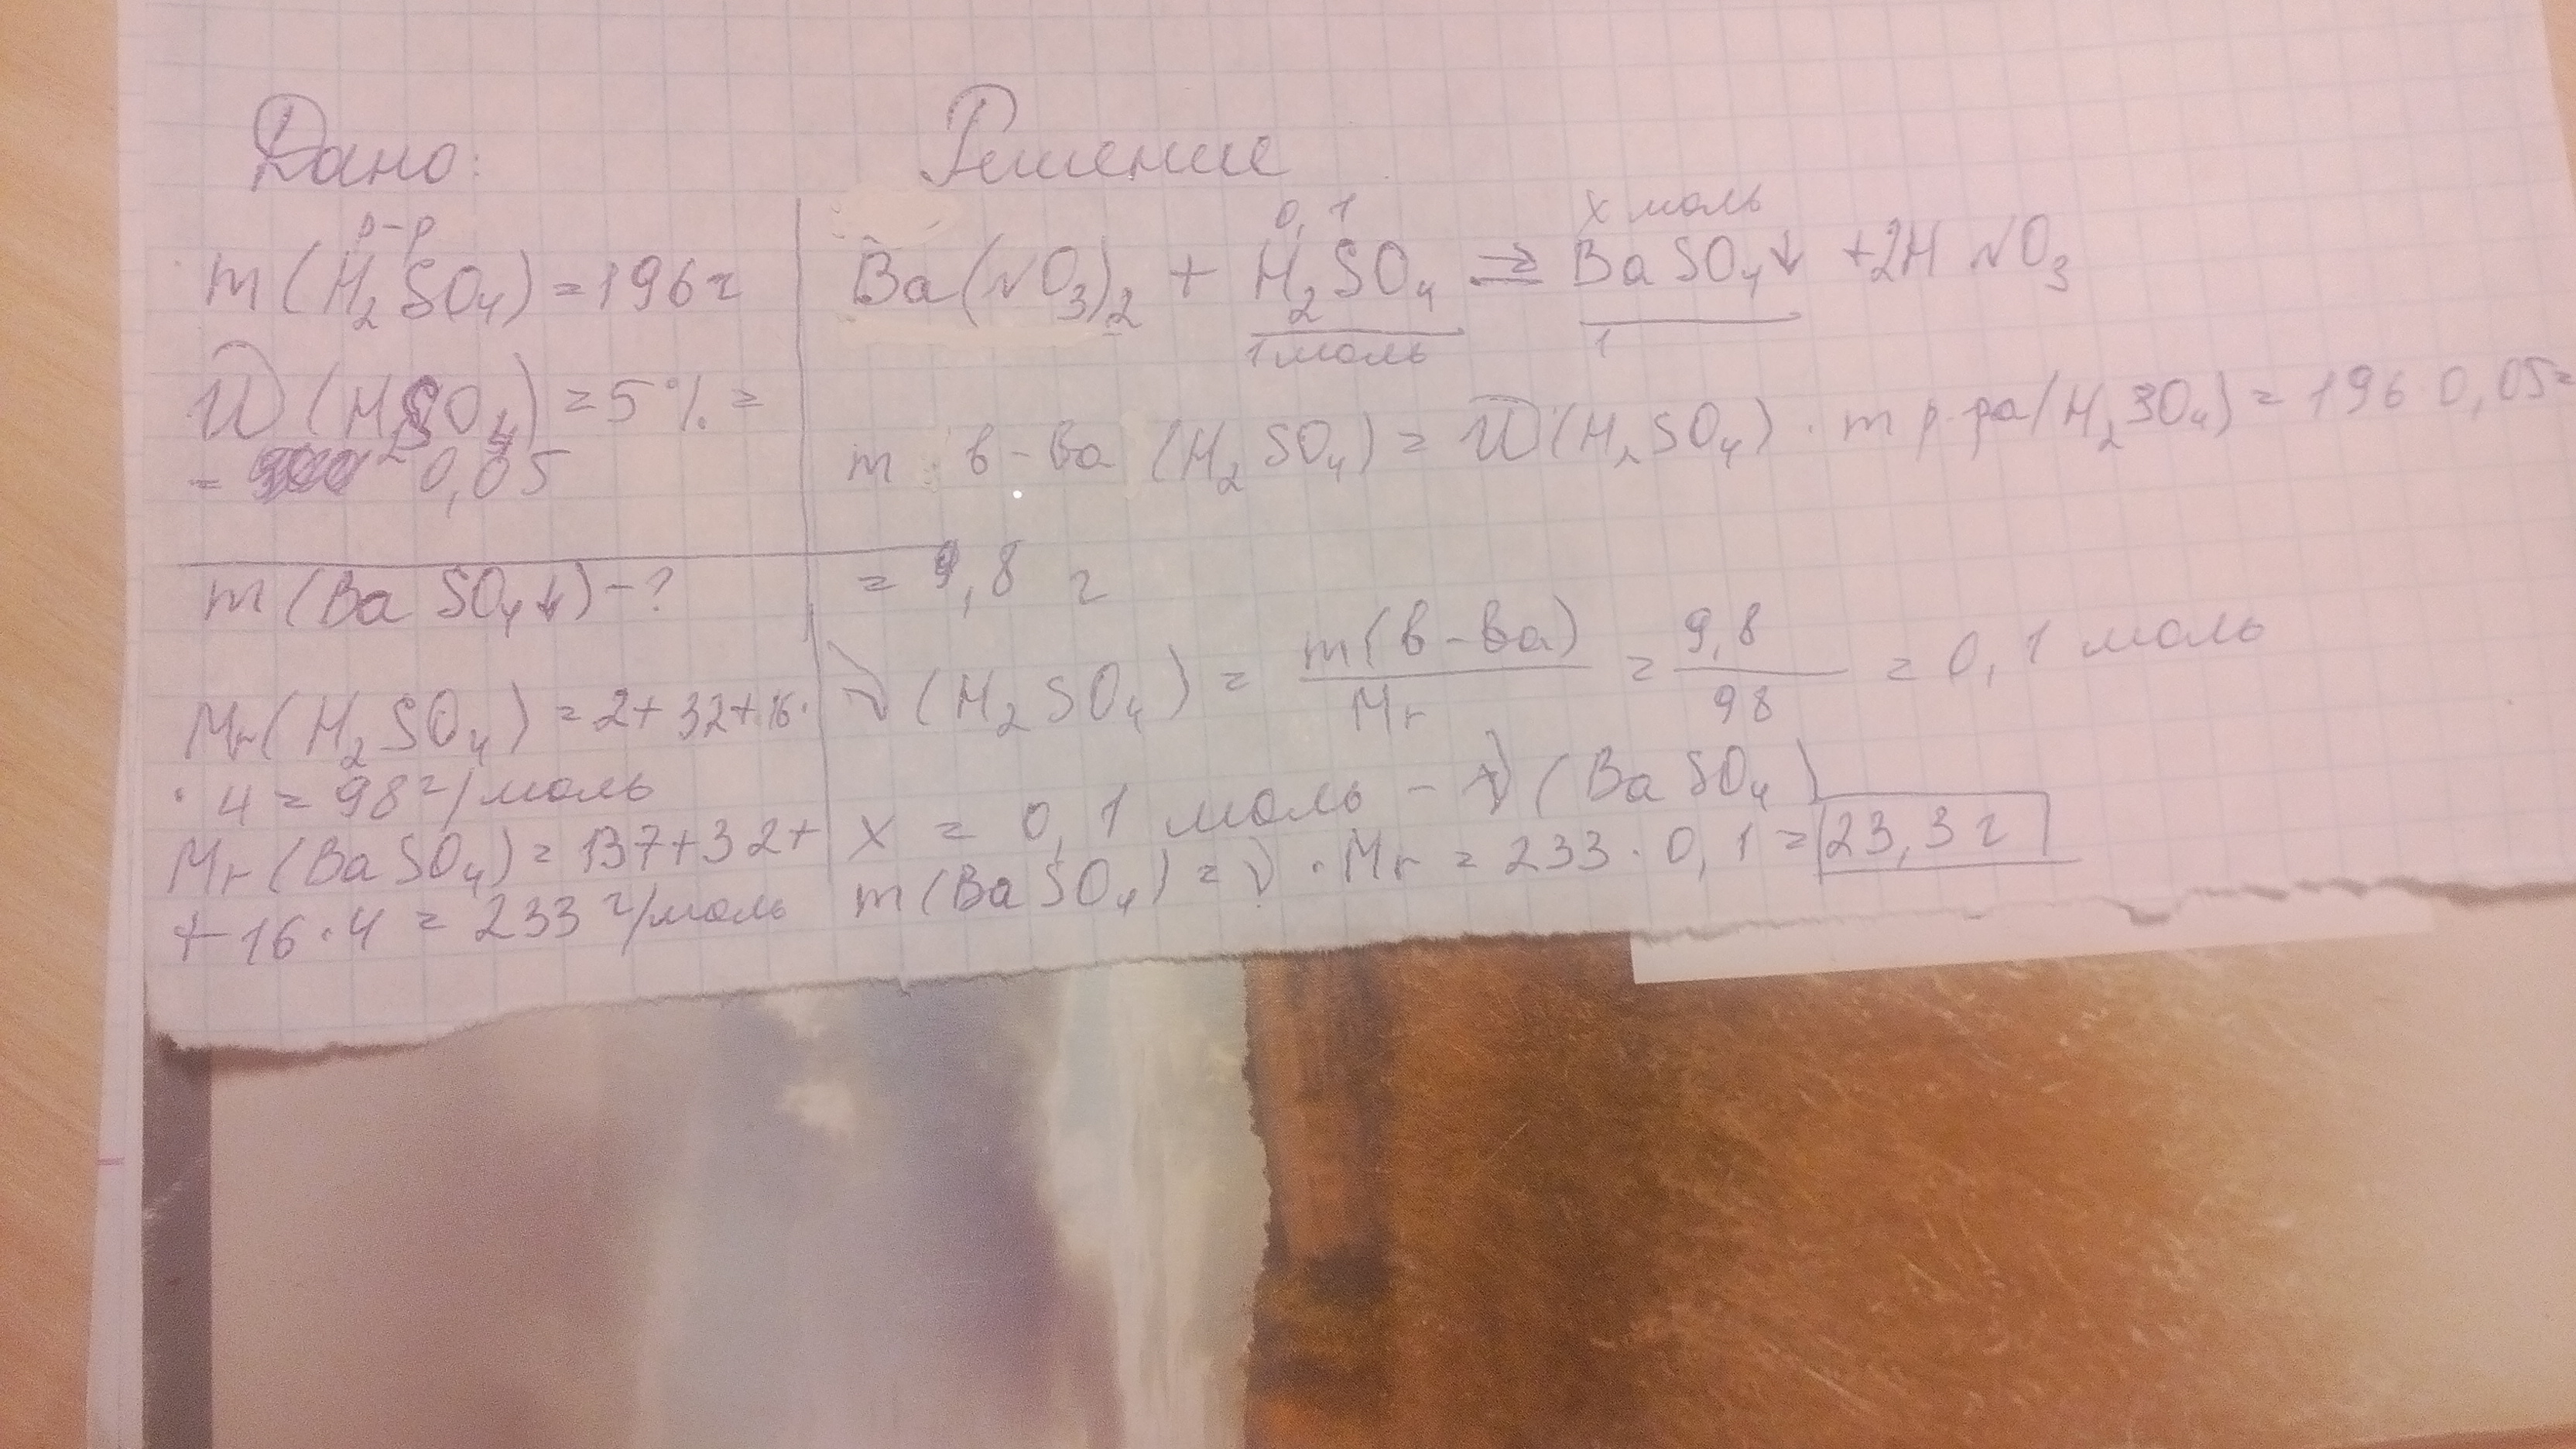 Дано:
р-р
m(H₂SO₄) = 196 г
ω(H₂SO₄) = 5% =
= 0,05
m(BaSO₄↓) - ?
Mr(H₂SO₄) = 2 + 32 + 16 ·
· 4 = 98 г/моль
Mr(BaSO₄) = 137 + 32 +
+ 16 · 4 = 233 г/моль
Решение
0,1 x моль
Ba(NO₃)₂ + H₂SO₄ ⇒ BaSO₄↓ + 2HNO₃
1 моль 1
m в-ва (H₂SO₄) = ω(H₂SO₄) · m р-ра(H₂SO₄) = 196 0,05 =
= 9,8 г
ν(H₂SO₄) = m(в-ва) / Mr = 9,8 / 98 = 0,1 моль
x = 0,1 моль - ν(BaSO₄)
m(BaSO₄) = ν · Mr = 233 · 0,1 = 23,3 г